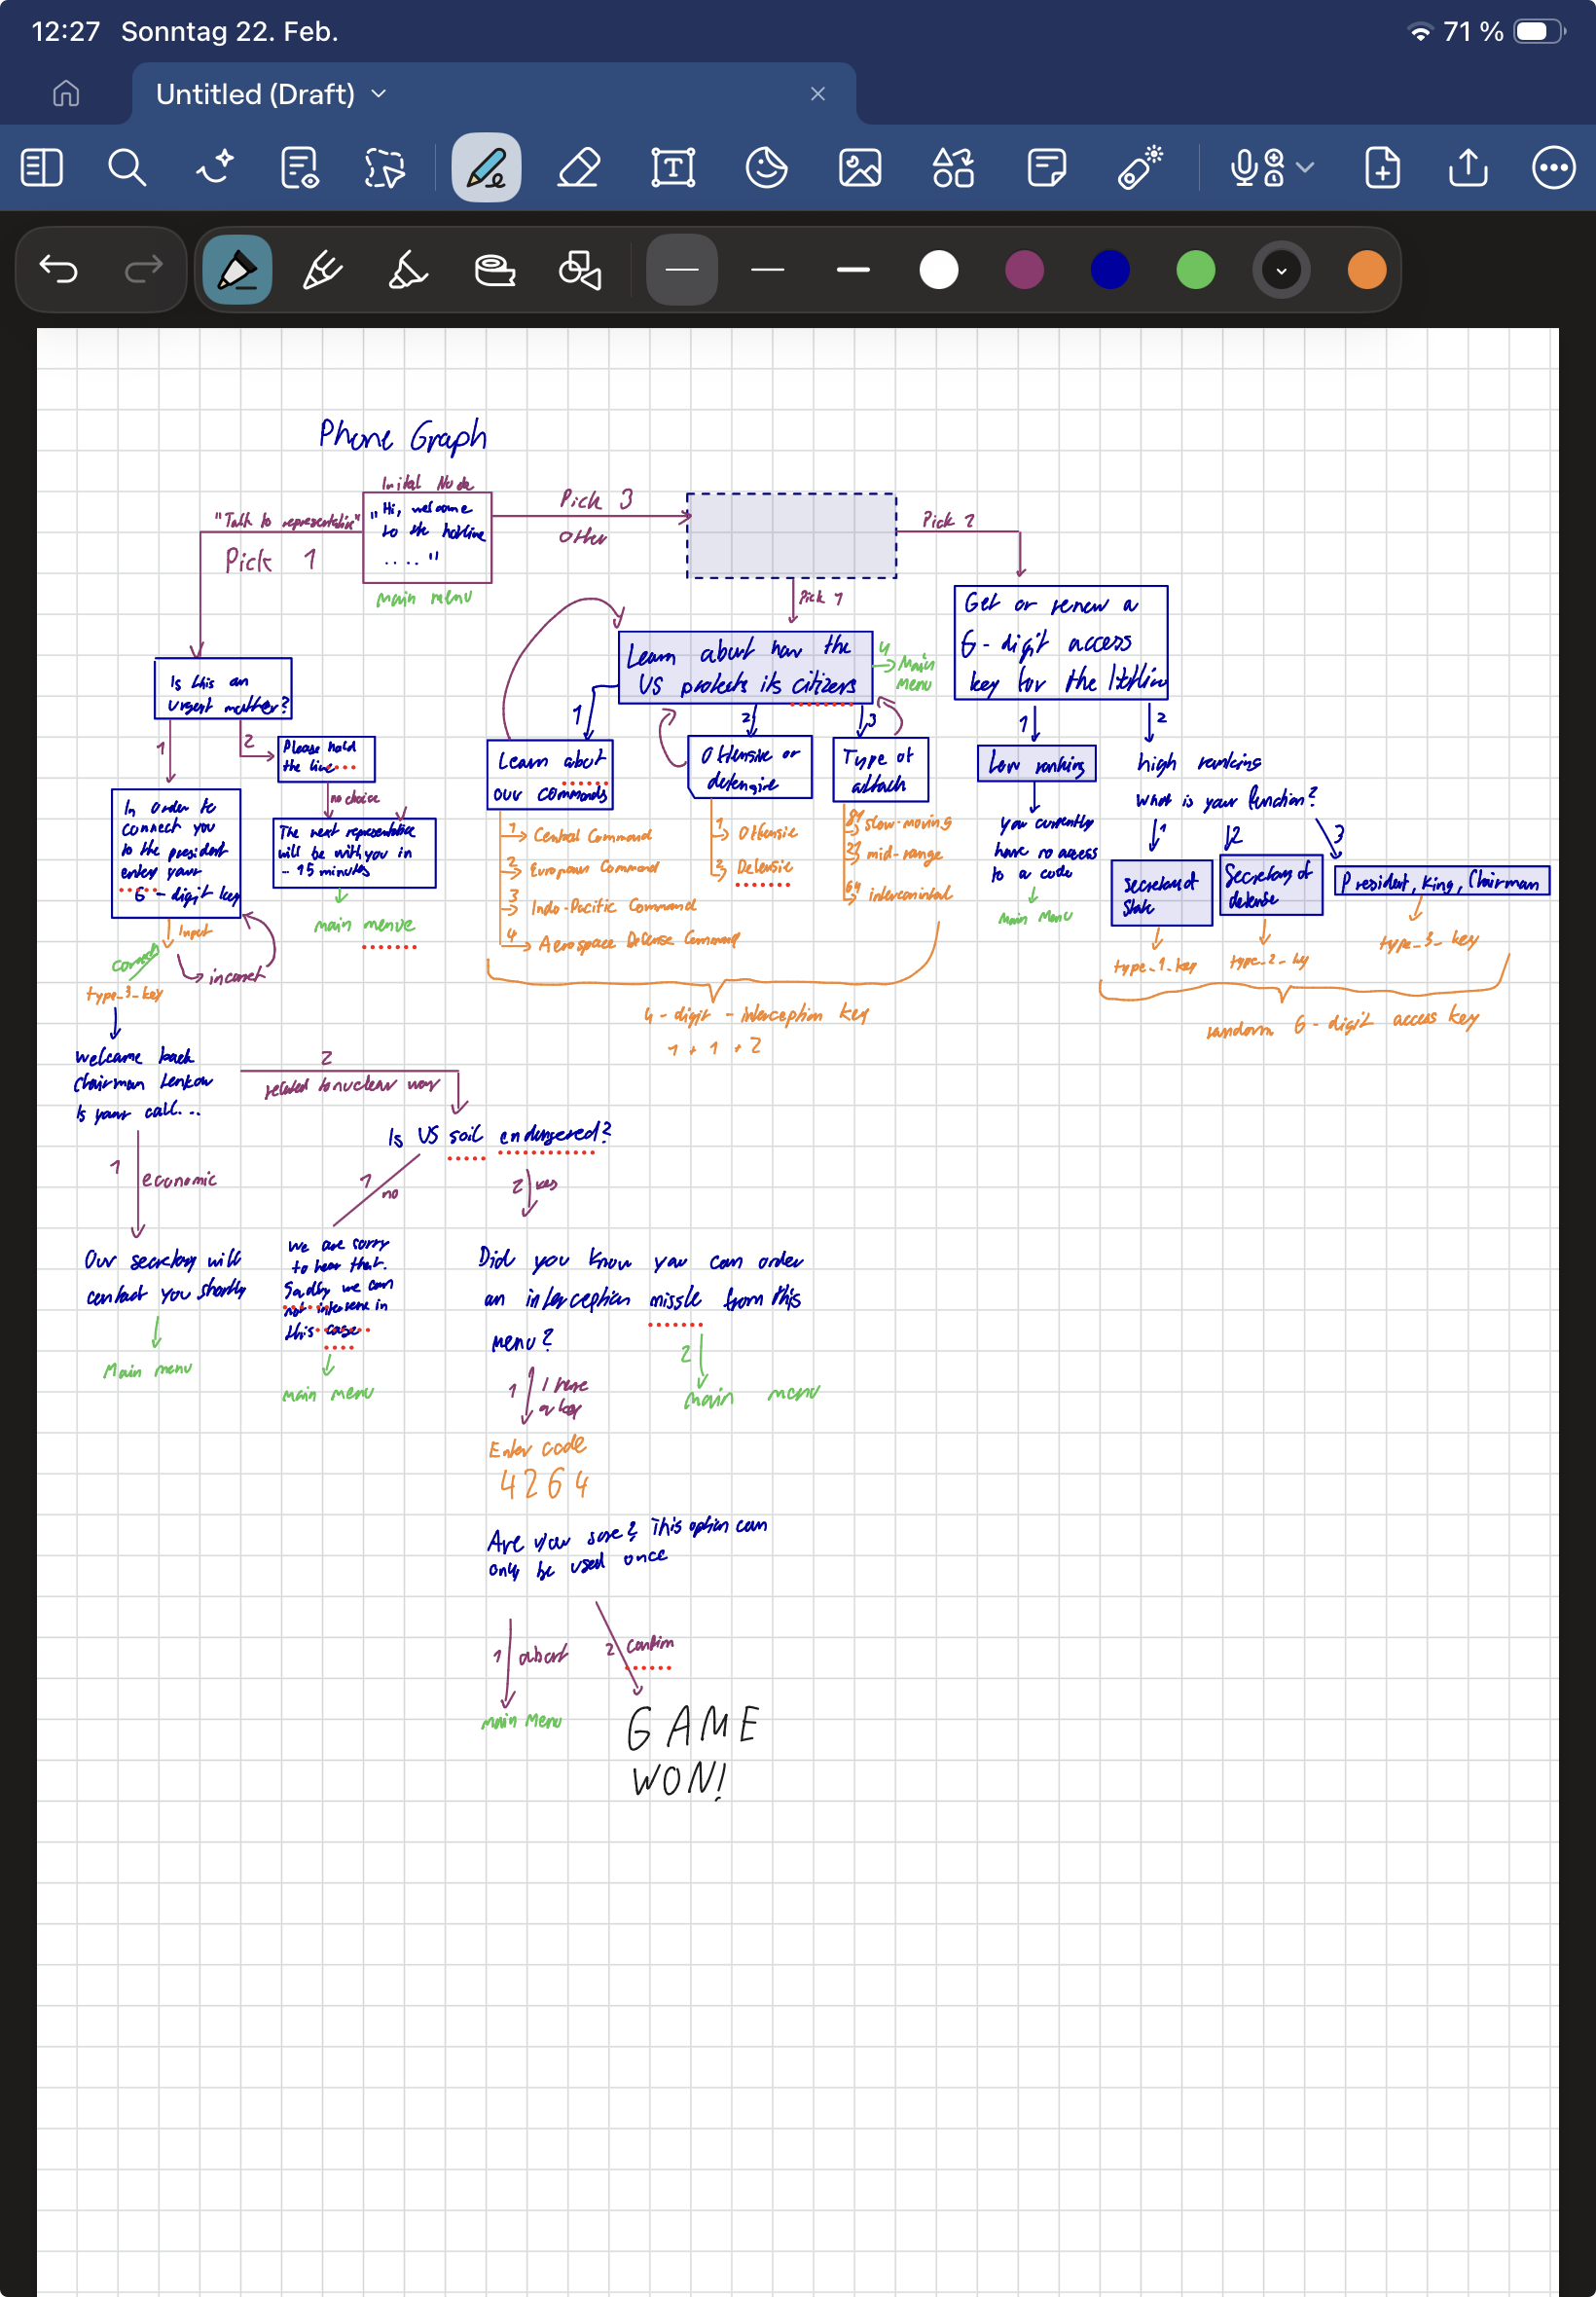 12:27 Sonntag 22. Feb.
71 %
Untitled (Draft)
Phone Graph
Inital Node
"Hi, welcome
to the hotline
...."
main menu
"Talk to representative"
Pick 1
Pick 3
Other
Pick 2
Pick 1
Is this an
urgent matter?
1
2
Please hold
the line
no choice
The next representative
will be with you in
~ 15 minutes
main menue
In order to
connect you
to the president
enter your
6-digit key
Input
correct
incorret
type_3_key
Welcome back
Chairman
Is your call...
1
economic
Our secretary will
contact you shortly
Main menu
2
related to nuclear war
Is US soil endangered?
1
no
We are sorry
to hear that.
Sadly we can
not intervene in
this case
main menu
2
yes
Did you know you can order
an interception missle from this
menu?
2
main menu
1
I have
a key
Enter code
4264
Are you sure? This option can
only be used once
1
abort
main Menu
2
confim
GAME
WON!
Learn about how the
US protects its citizens
4
Main
Menu
1
2
3
Learn about
our commands
1 Central Command
2 European Command
3 Indo-Pacific Command
4 Aerospace Defense Command
Offensive or
defensive
1 Offensie
2 Defensie
Type of
attack
slow-moving
mid-range
4-digit-interception key
1 + 1 + 2
Get or renew a
6-digit access
key for the Hotline
1
2
Low ranking
you currently
have no access
to a code
Main Menu
high ranking
What is your function?
1
2
3
Secretary of
State
type_1_key
Secretary of
defense
type_2_key
President, King, Chairman
type_3_key
random 6-digit access key